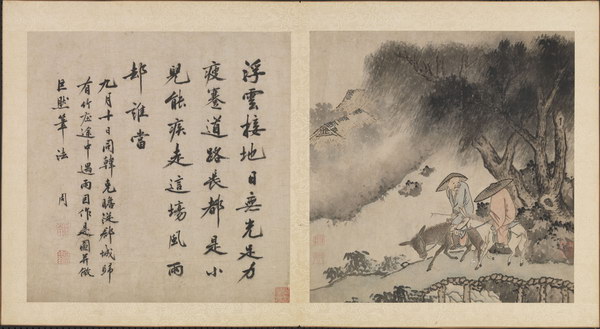 浮雲接地日無光足力
疲蹇道路長都是小
兒能疾走這場風雨
却誰當
九月十日同韓克瞻從郡城歸
有竹庄途中遇雨因作是圖并倣
巨然筆法 周